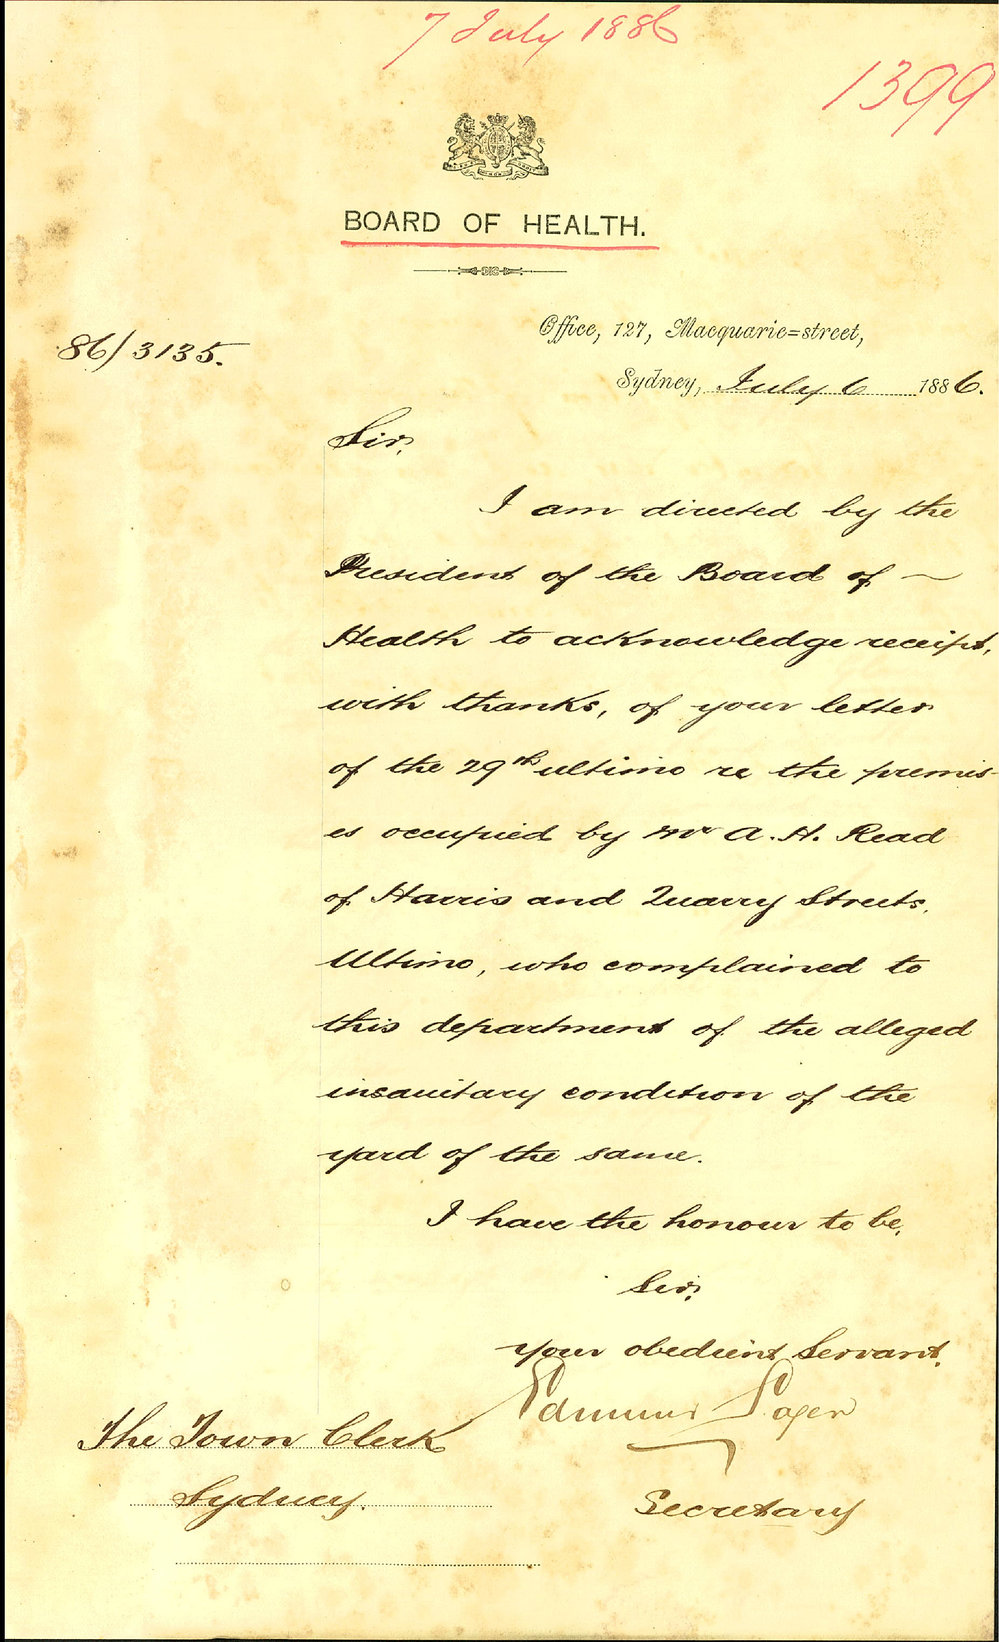 7 July 1886
1399
BOARD OF HEALTH.
Office, 127, Macquarie=street,
86/3135.
Sydney, July 6 1886.
Sir,
I am directed by the
President of the Board of
Health to acknowledge receipt,
with thanks, of your letter
of the 29th ultimo re the premis-
es occupied by Mr A. H. Read
of Harris and Quarry Streets,
Ultimo, who complained to
this department of the alleged
insanitary condition of the
yard of the same.
I have the honour to be,
Sir,
your obedient Servant,
Edmund Sager
The Town Clerk
Sydney.
Secretary